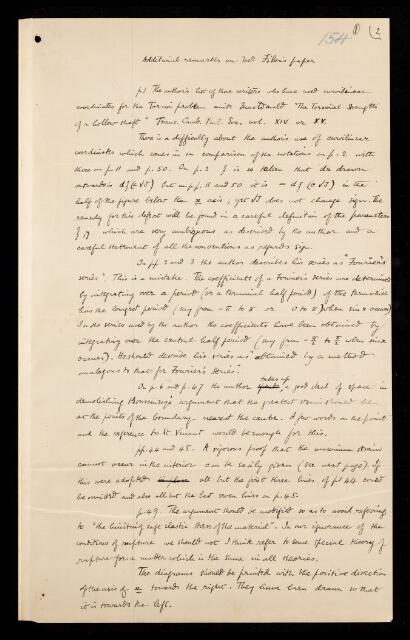 154 ① (2
Additional remarks on Mr Filon's paper
p.1 The author's list of those writers who have used curvilinear
coordinates for the Torsion problem omits Macdonald "The Torsional Strength
of a hollow shaft" Trans. Camb. Phil. Soc. vol. XIV or XV.
There is a difficulty about the author's use of curvilinear
coordinates which comes in on comparison of the notations on p. 2 with
those on p. 11 and p. 50. On p. 2 ξ is so taken that dn drawn
outwards is dξ (c√J) but on pp. 11 and 50 it is - dξ (c√J) in the
half of the figure below the x axis, yet √J does not change sign. The
remedy for this defect will be found in a careful definition of the parameters
ξ, η which are very ambiguous as described by the author and a
careful statement of all the conventions as regards sign.
In pp. 2 and 3 the author describes his series as "Fourier's
series". This is a mistake. The coefficients of a Fourier's series are determined
by integrating over a period (or a terminal half period) of the term which
has the longest period (say from -π to π or 0 to π) when sin x occurs)
In the series used by the author the coefficients have been obtained by
integrating over the central half period (say from -π/2 to π/2 when sin x
occurs). He should describe his series as "obtained by a method
analogous to that for Fourier's Series".
On p. 6 and p. 47 the author takes up a good deal of space in
demolishing Boussinesq's argument that the greatest strain should be
at the points of the boundary nearest the centre. A few words on the point
and the reference to St Venant would be enough for this.
pp. 44 and 45. A rigorous proof that the maximum strain
cannot occur in the interior can be easily given (see next page). If
this were adopted all but the first three lines of p. 44 could
be omitted and also all but the last seven lines on p. 45.
p. 49. The argument should be modified so as to avoid referring
to "the limiting safe elastic stress of the material". In our ignorance of the
conditions of rupture we should not I think refer to some special theory of
rupture for a matter which is the same in all theories.
The diagrams should be printed with the positive direction
of the axis of x towards the right. They have been drawn so that
it is towards the left.